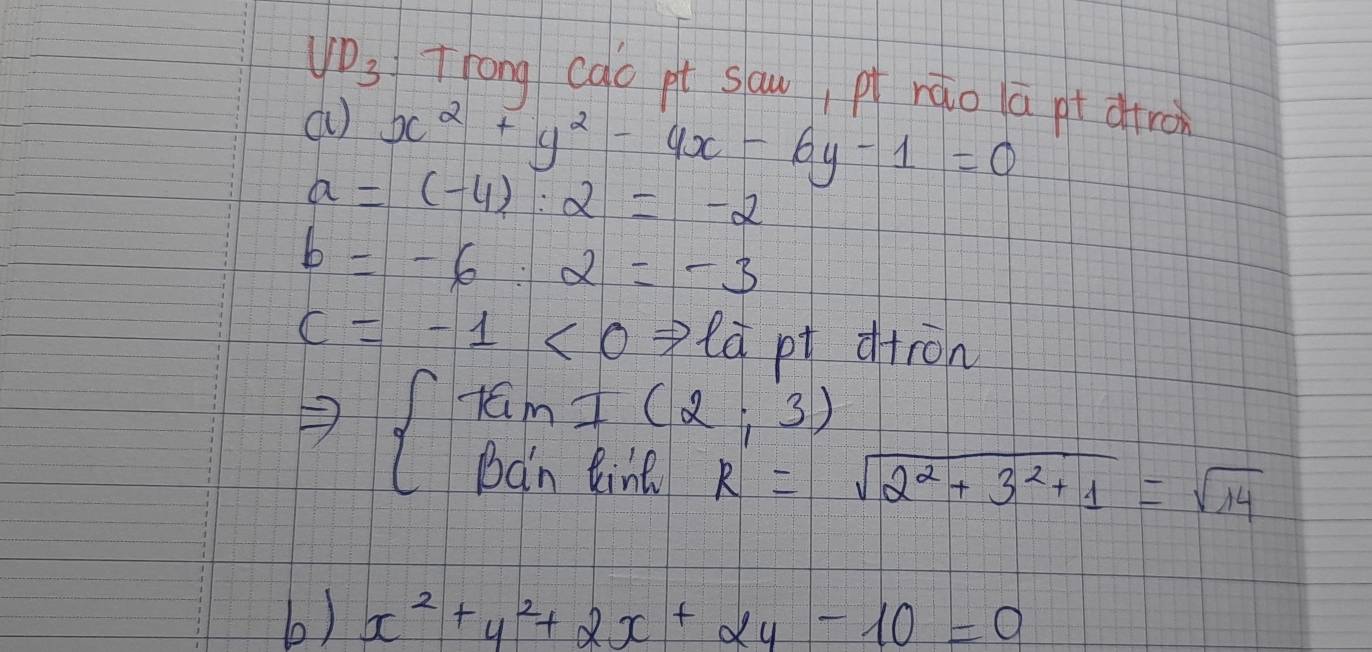 VD₃: Trong các pt sau, pt rào là pt đtròn
a) x² + y² - 4x - 6y - 1 = 0
a = (-4) : 2 = -2
b = -6 : 2 = -3
c = -1 < 0 ⇒ là pt đtròn
⇒ { tâm I (2 ; 3)
Bán kính R = √(2² + 3² + 1) = √14
b) x² + y² + 2x + 2y - 10 = 0